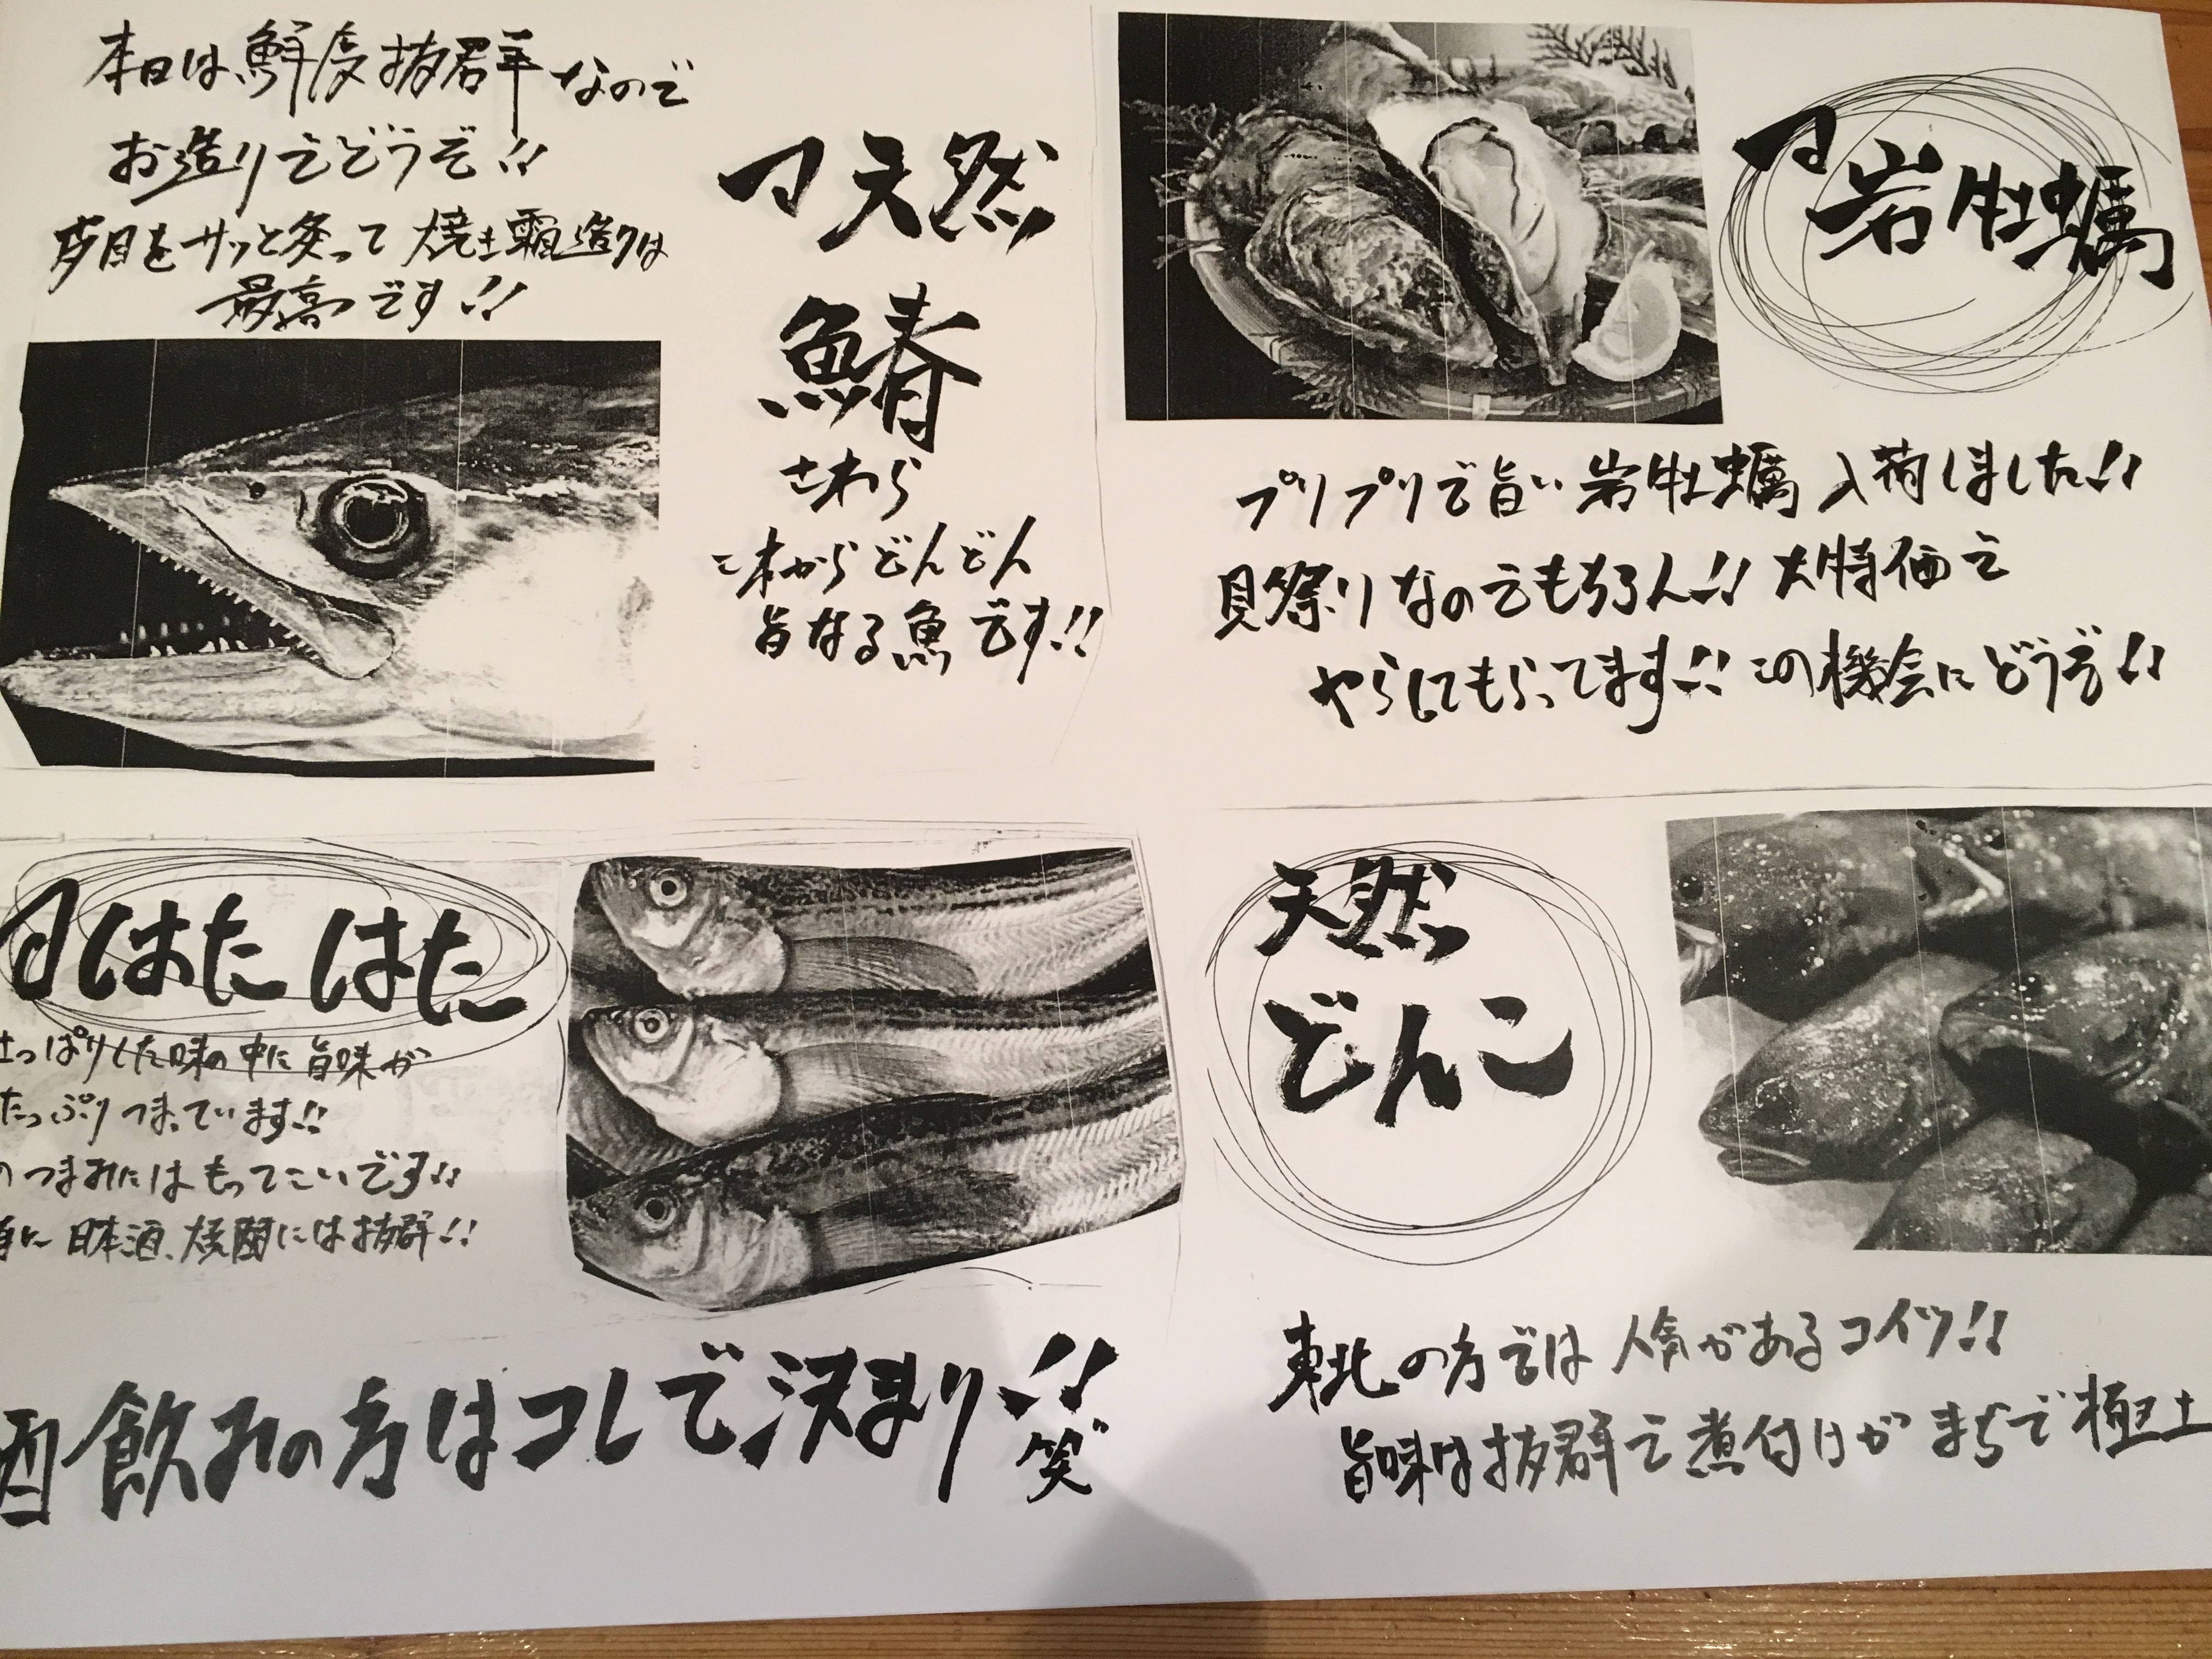 本日は鮮度抜群なので
お造りでどうぞ!!
皮目をサッと炙って焼き霜造りは
最高です!!
天然
鰆
さわら
これからどんどん
旨なる魚です!!
岩牡蠣
プリプリで旨い岩牡蠣入荷しました!!
貝祭りなのでもちろん!!大特価で
やらしてもらってます!!この機会にどうぞ!!
はたはた
っぱりした味の中に旨味が
たっぷりつまっています!!
つまみにはもってこいです!!
に日本酒、焼酎には抜群!!
酒飲みの方はコレで決まり!!
笑
天然
どんこ
東北の方では人気があるコイツ!!
旨味は抜群で煮付けがまぢで極上